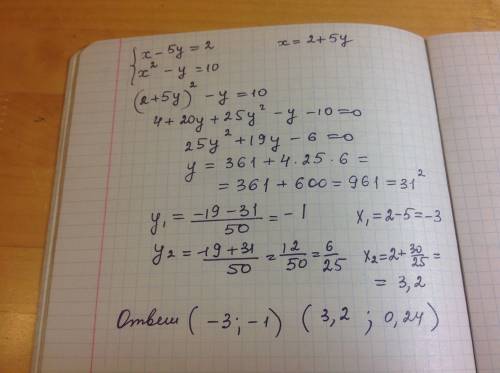 { x - 5y = 2    x = 2 + 5y
x² - y = 10
(2+5y)² - y = 10
4 + 20y + 25y² - y - 10 = 0
25y² + 19y - 6 = 0
y = 361 + 4·25·6 =
= 361 + 600 = 961 = 31²
y₁ = (-19-31)/50 = -1    x₁ = 2-5 = -3
y₂ = (-19+31)/50 = 12/50 = 6/25    x₂ = 2 + 30/25 =
= 3,2
Ответ (-3; -1) (3,2 ; 0,24)